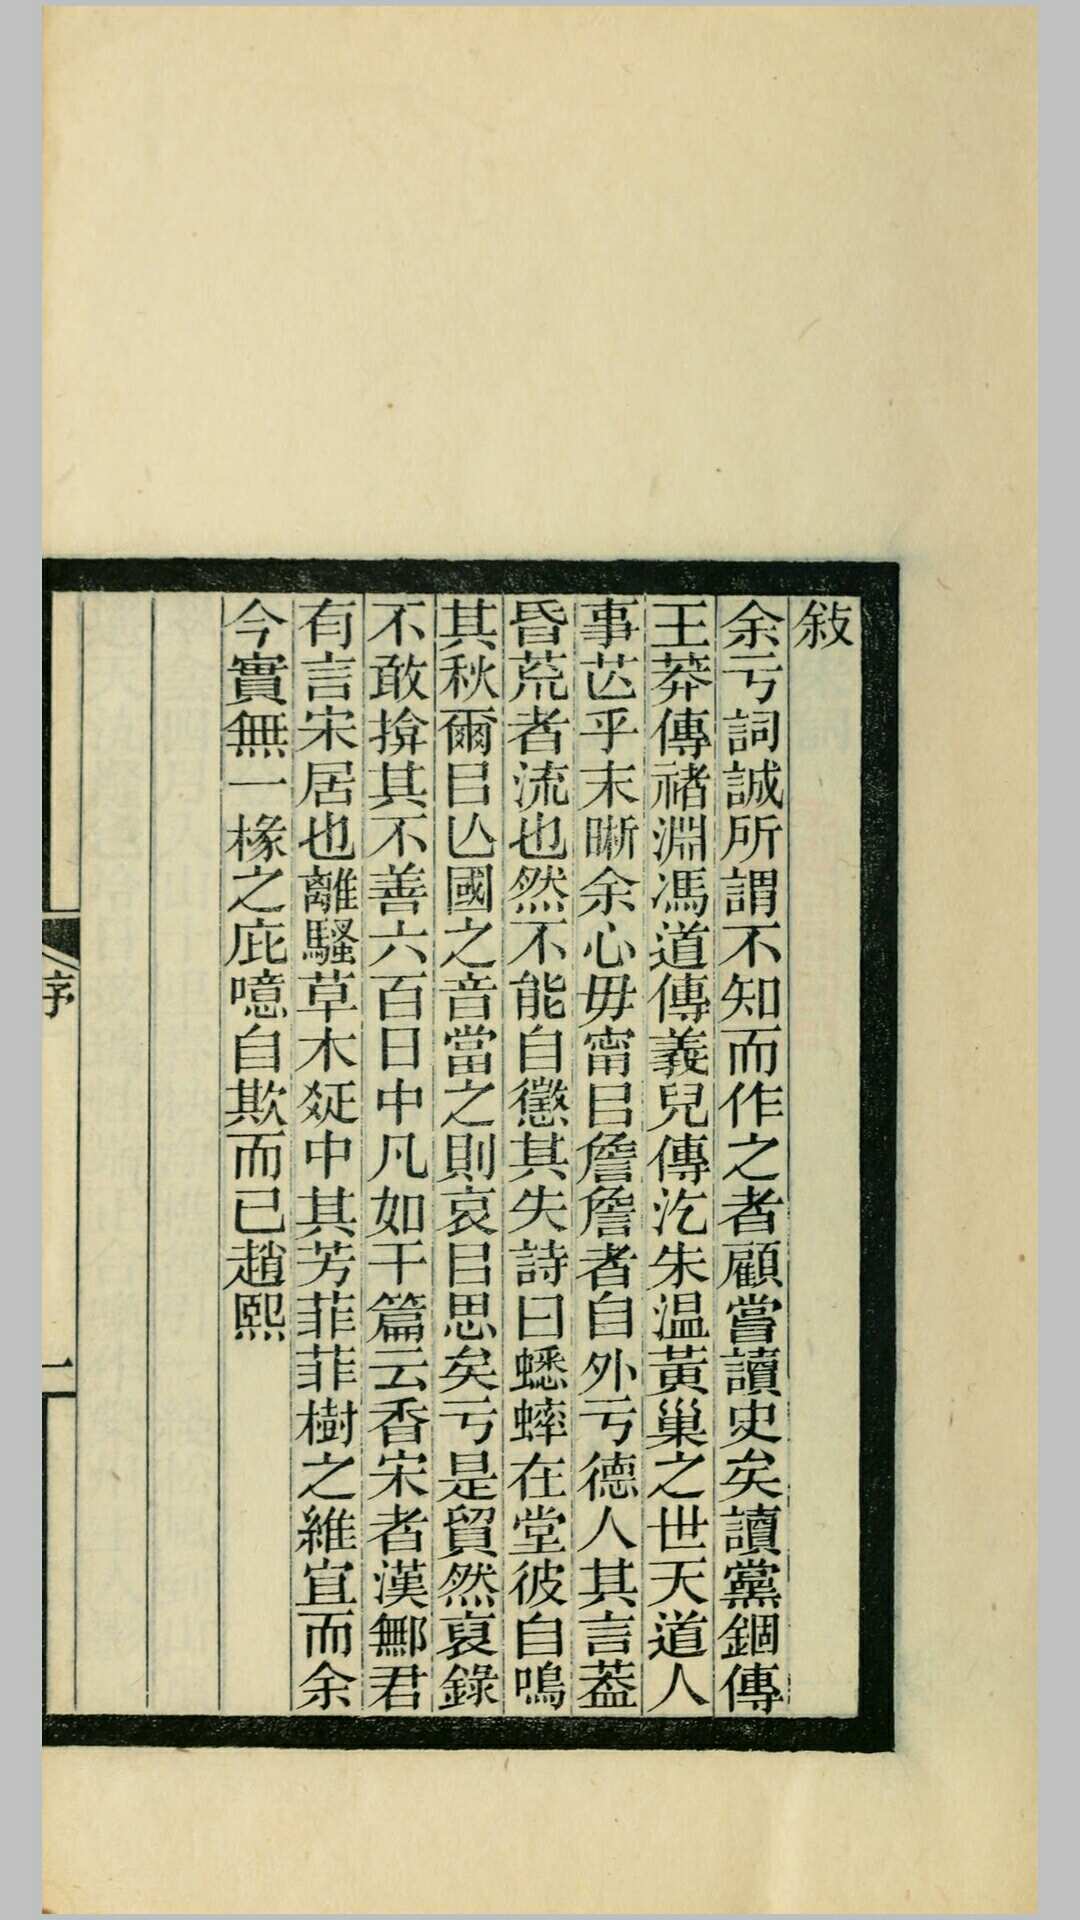 敍
余亏詞誠所謂不知而作之者顧嘗讀史矣讀黨錮傳
王莽傳褚淵馮道傳義兒傳汔朱温黃巢之世天道人
事芯乎末晰余心毋甯㠯詹詹者自外亏德人其言葢
昏荒者流也然不能自懲其失詩曰蟋蟀在堂彼自鳴
其秋爾㠯亾國之音當之則哀㠯思矣亏是貿然裒錄
不敢揜其不善六百日中凡如干篇云香宋者漢鄦君
有言宋居也離騷草木㷼中其芳菲菲樹之維宜而余
今實無一椽之庇噫自欺而已趙熙
序
一